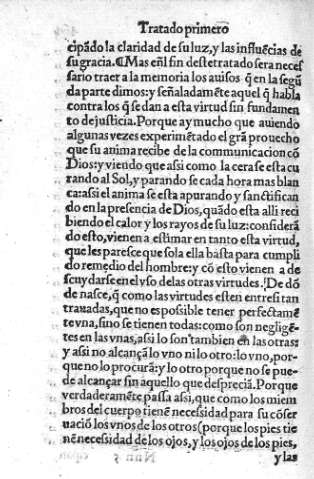 Tratado primero
cipãdo la claridad de su luz, y las influẽcias de
su gracia. ¶Mas eñl fin deste tratado sera neces
sario traer a la memoria los auisos q̃ en la segũ
da parte dimos: y señaladamẽte aquel q̃ habla
contra los q̃ se dan a esta virtud sin fundamen
to de justicia. Porque ay mucho que auiendo
algunas vezes experimẽtado el grã prouecho
que su anima recibe de la communicacion cõ
Dios: y viendo que assi como la cera se esta cu
rando al Sol, y parando se cada hora mas blan
ca: assi el anima se esta apurando y sanctifican
do en la presencia de Dios, quãdo esta alli reci
biendo el calor y los rayos de su luz: considerã
do esto, vienen a estimar en tanto esta virtud,
que les paresce que sola ella basta para cumpli
do remedio del hombre: y cõ esto vienen a de
scuydarse en el vso de las otras virtudes. De dõ
de nasce, q̃ como las virtudes esten entre si tan
trauadas, que no es posible tener perfectamẽ
te vna, sino se tienen todas: como son negligẽ
tes en las vnas, assi lo son tambien en las otras:
y assi no alcançã lo vno ni lo otro: lo vno, por-
que no lo procurã: y lo otro porque no se pue-
de alcançar sin aquello que despreciã. Porque
verdaderamẽte passa assi, que como los miem
bros del cuerpo tienẽ necessidad para su cõser
uaciõ los vnos de los otros (porque los pies tie
nẽ necessidad de los ojos, y los ojos de los pies,
y las